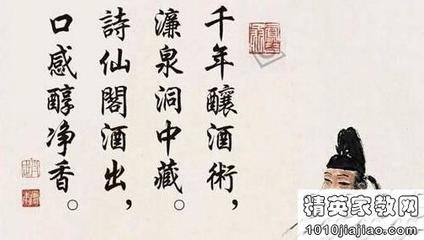 千年釀酒術，
濂泉洞中藏。
詩仙閣酒出，
口感醇净香。
精英家教网
1010jiajiao.com